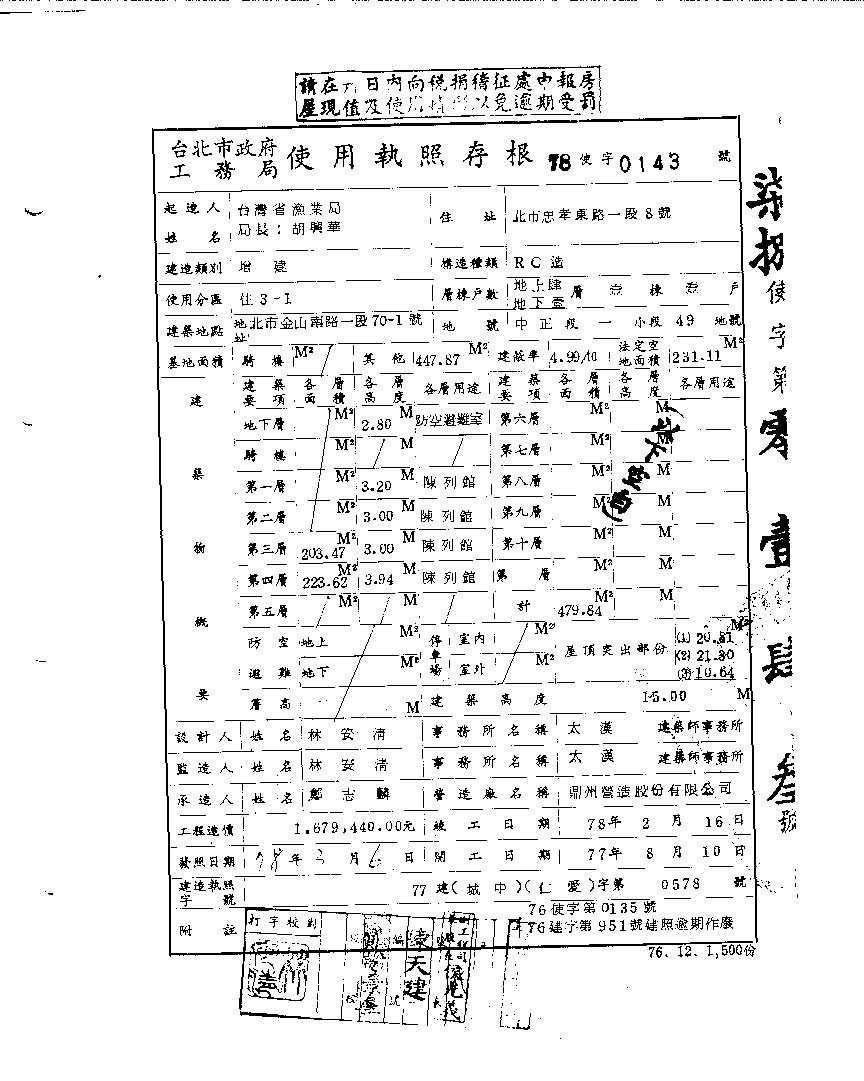 請在卅日內向稅捐稽征處申報房
屋現值及使用情形以免逾期受罰
台北市政府
工務局 使用執照存根 78使字0143號
起造人姓名 台灣省漁業局
局長：胡興華 住址 北市忠孝東路一段8號
建造類別 增建 構造種類 RC造
使用分區 住3-1 層棟戶數 地上肆 地下壹 層 壹 棟 壹 戶
建築地點 地址 北市金山南路一段70-1號 地號 中正段一小段49地號
基地面積 騎樓 M² 其他 447.87 M² 建蔽率 4.99/10 法定空地面積 231.11 M²
建築物概要 建築要項 各層面積 各層高度 各層用途 建築要項 各層面積 各層高度 各層用途
地下層 M² 2.80 M 防空避難室 第六層 M² M
騎樓 M² M 第七層 M² M
第一層 M² 3.20 M 陳列館 第八層 M² M
第二層 M² 3.00 M 陳列館 第九層 M² M
第三層 203.47 M² 3.00 M 陳列館 第十層 M² M
第四層 223.62 M² 3.94 M 陳列館 第 層 M² M
第五層 M² M 計 479.84
防空避難 地上 M² 停車場 室內 M² 屋頂突出部份 (1)20.81 M²
地下 M² 室外 M² (2)21.80
(3)10.64
簷高 M 建築高度 15.00 M
設計人 姓名 林安清 事務所名稱 太漢 建築師事務所
監造人 姓名 林安清 事務所名稱 太漢 建築師事務所
承造人 姓名 鄭志麟 營造廠名稱 鼎州營造股份有限公司
工程造價 1,679,440.00元 竣工日期 78年2月16日
發照日期 78年3月6日 開工日期 77年8月10日
建造執照字號 77建(城中)(仁愛)字第0578號
附註 76使字第0135號
76建字第951號建照逾期作廢
76.12.1,500份
打字校對
陳天建
柒拐使字第零壹肆叁號